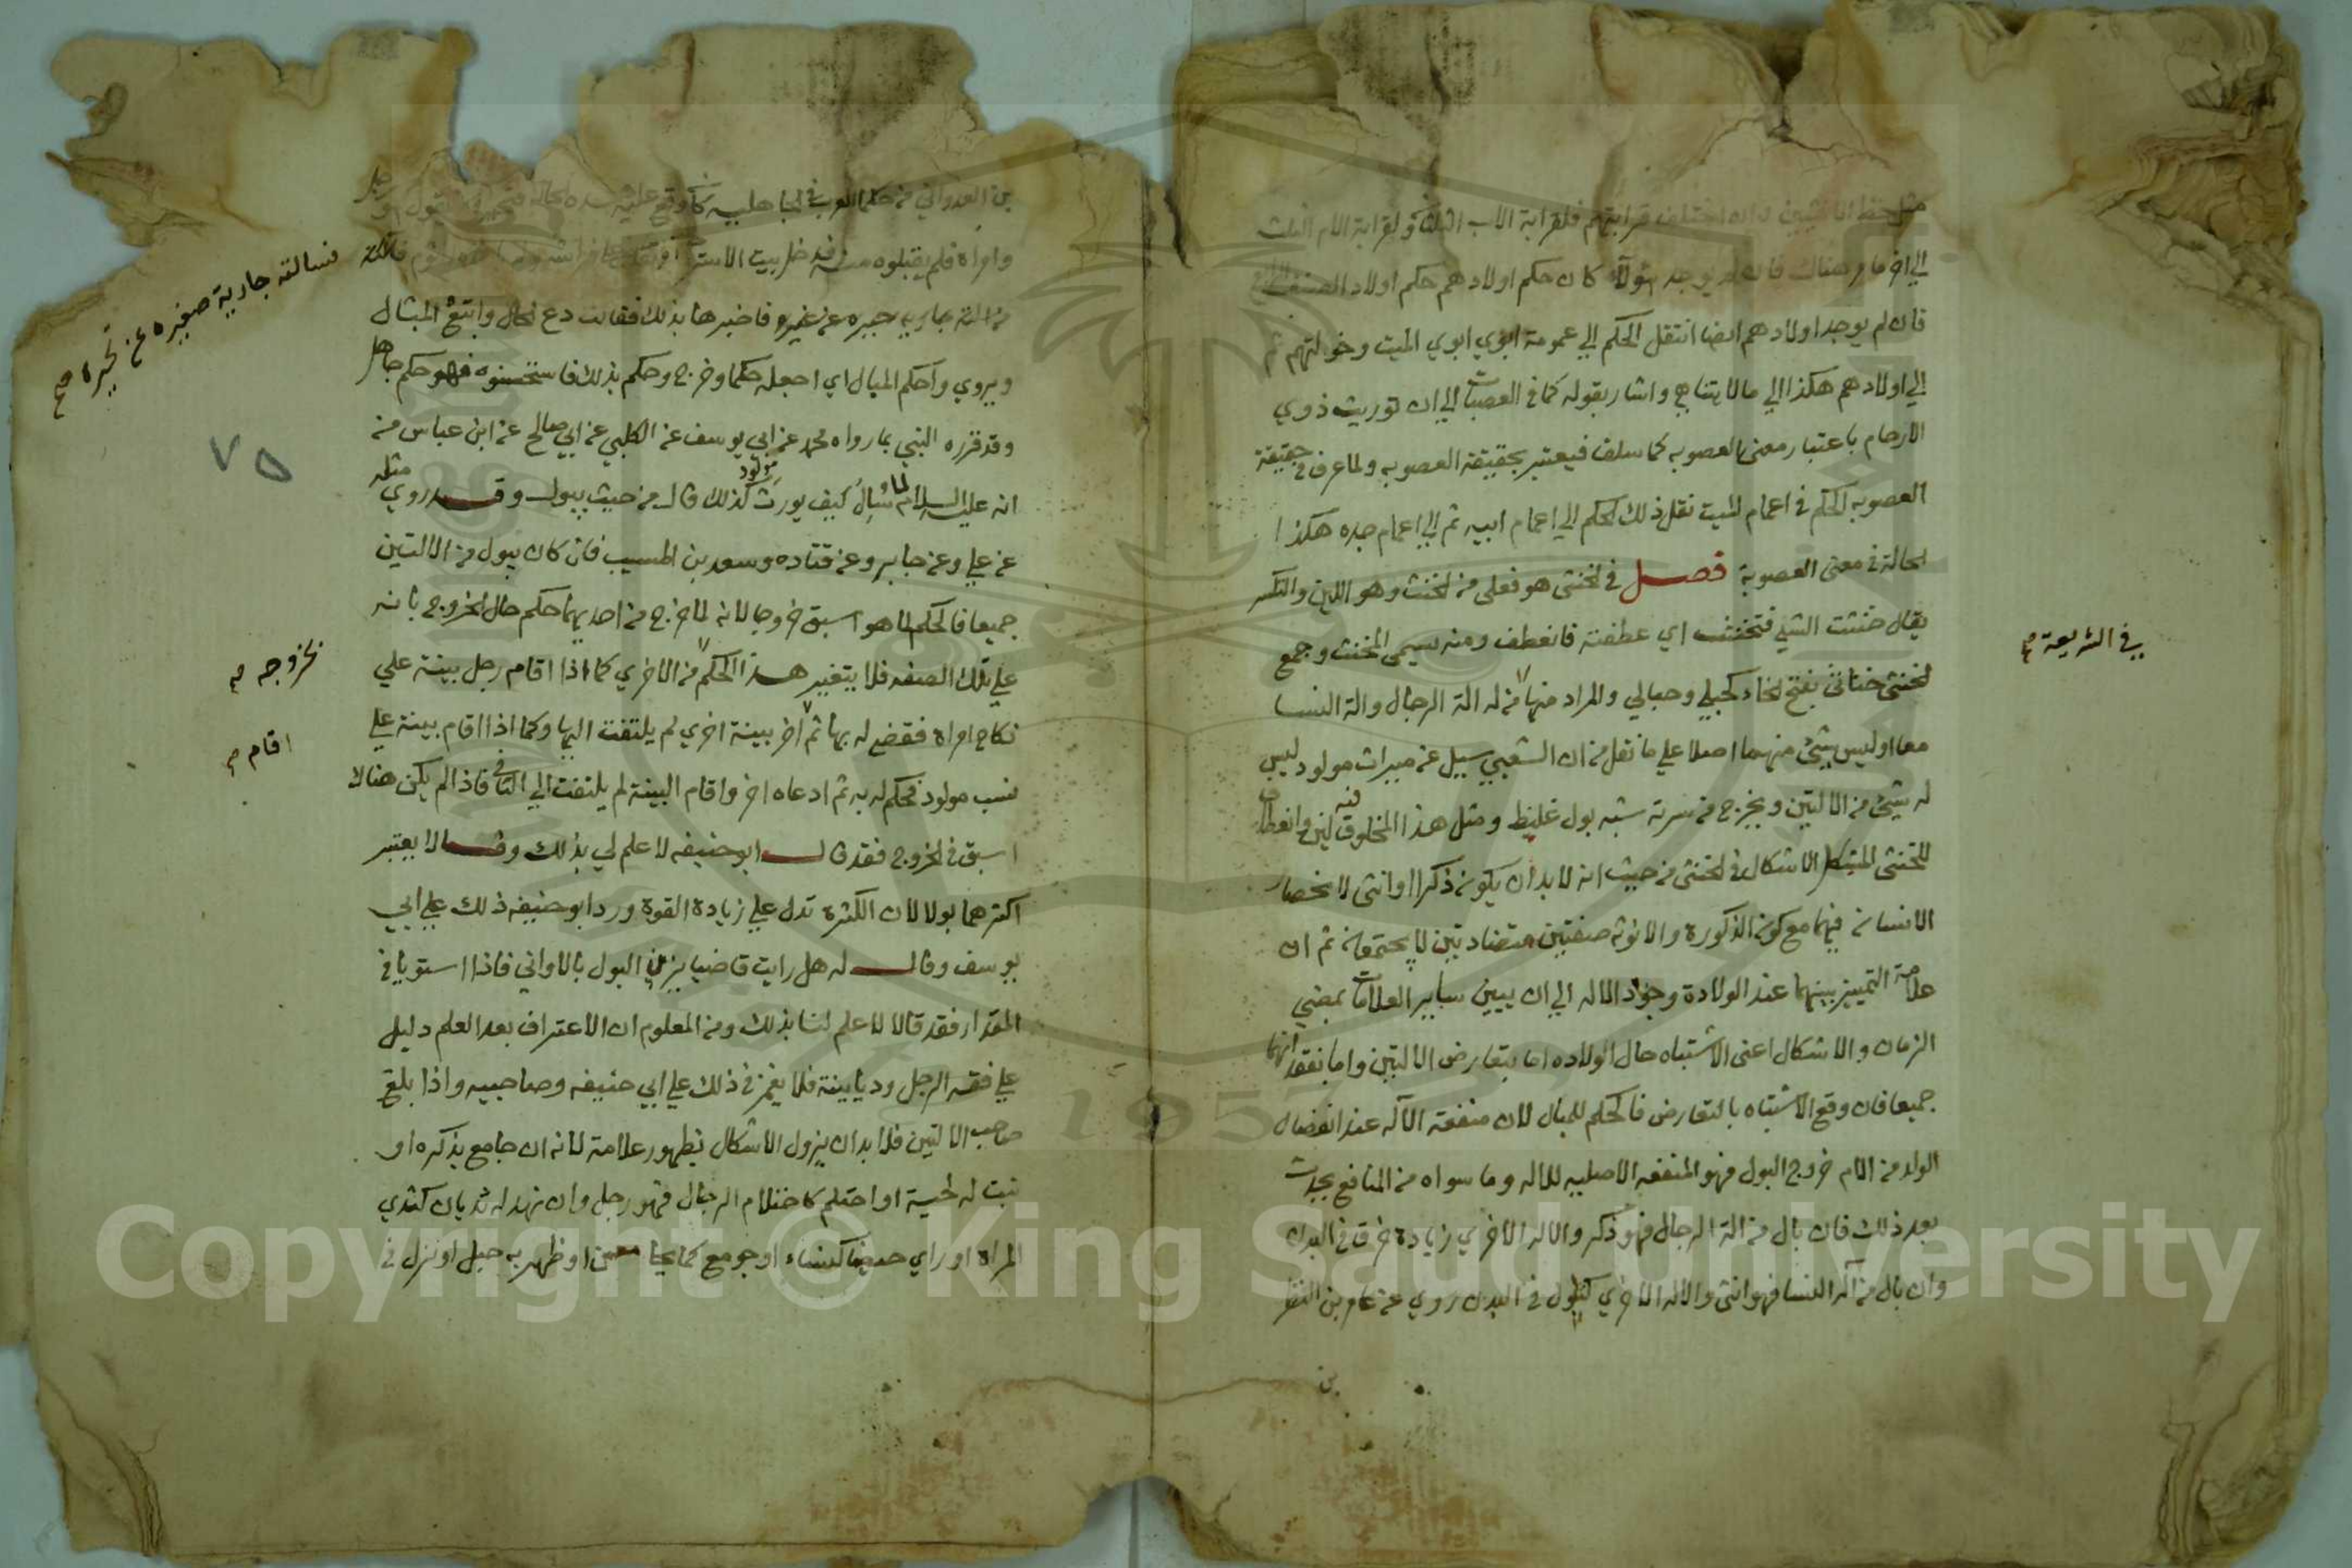 مثل حظ الانثيين وان اختلف قرابتهم فلقرابة الاب الثلثان ولقرابة الام الثلث
الي اخر ما مر هناك فان لم يوجد هولاء كان حكم اولادهم حكم اولاد الصنف الرابع
فان لم يوجد اولادهم ايضا انتقل الحكم الي عمومة ابوي ابوي الميت وخولتهم ثم
الي اولادهم هكذا الي مالا يتناهي واشار بقوله كما في العصبات الي ان توريث ذوي
الارحام باعتبار معني العصوبه كما سلف فيعتبر بحقيقة العصوبه ولما عرف في حقيقة
العصوبه الحكم في اعمام الميت نقل ذلك الحكم الي اعمام ابيه ثم الي اعمام جده هكذا
الحالة في معني العصوبة فصل في الخنثي هو فعلي من الخنث وهو اللين والتكسر
يقال خنثت الشي فتخنث اي عطفته فانعطف ومنه سمي المخنث وجمع
الخنثي خناثي بفتح الخاء كحبلي وحبالي والمراد منها من له الة الرجال والة النسا
في الشريعة صح
معا او ليس شئ منهما اصلا علي ما نقل من ان الشعبي سيل عن ميراث مولود ليس
له شئ من الالتين ويخرج من سرته شبه بول غليظ ومثل هذا المخلوق فيه لين وانعطاف
للخنثي المشكل الاشكال في الخنثي من حيث انه لا بد ان يكون ذكرا او انثي لانحصار
الانسان فيهما مع كون الذكورة والانوثه صفتين متضادتين لا يجتمعان ثم ان
علامة التمييز بينهما عند الولادة وجود الاله الي ان يبين ساير العلامات بمضي
الزمان والاشكال اعني الاشتباه حال الولاده اما بتعارض الالتين واما بفقدانهما
جميعا فان وقع الاشتباه بالتعارض فالحكم للمبال لان منفعة الآله عند انفصال
الولد من الام خروج البول فهو المنفعه الاصليه للاله وما سواه من المنافع يحدث
بعد ذلك فان بال من الة الرجال فهو ذكر والاله الاخري زيادة خرق في البدن
وان بال من آلة النسا فهو انثي والاله الاخري كثؤلول في البدن روي عن عامر بن الظر
بن
بن العدواني من حكما العرب في الجاهليه
وامراة فلم يقبلوه منه فدخل بيت الاستر
فسالته جارية صغيرة عن تحيره صح
فاخبرها بذلك فقالت دع الحال واتبع المبال
ويروي واحكم المبال اي اجعله حكما وخرج وحكم بذلك فاستحسنوه فهو حكم جاهل
وقد قرره النبي بما رواه محمد عن ابي يوسف عن الكلبي عن ابي صالح عن ابن عباس من
٧٥
انه عليه السلام لما سيل كيف يورث مولود كذلك قال من حيث يبول وقد روي مثله
عن علي وعن جابر وعن قتاده وسعد بن المسيب فان كان يبول من الالتين
جميعا فالحكم لما هو اسبق خروجا لانه لما خرج من احديهما حكم حال الخروج بانه
علي تلك الصفه فلا يتغير هذا الحكم من الاخري كما اذا اقام رجل بينة علي
بخروجه صح
نكاح امراة فقضي له بها ثم اخر بينة اخري لم يلتفت اليها وكما اذا اقام بينة علي
اقام صح
نسب مولود فحكم له به ثم ادعاه اخر واقام البينة لم يلتفت الي الثاني فاذا لم يكن هنالا
اسبق في الخروج فقد قال ابو حنيفه لا علم لي بذلك وقالا يعتبر
اكثرهما بولا لان الكثرة تدل علي زيادة القوة ورد ابو حنيفه ذلك علي ابي
يوسف وقال له هل رايت قاضيا يزن البول بالاواني فاذا استويا في
المقدار فقد قالا لا علم لنا بذلك ومن المعلوم ان الاعتراف بعدم العلم دليل
علي فقه الرجل وديانته فلا يغمز في ذلك علي ابي حنيفه وصاحبيه واذا بلغ
صاحب الالتين فلا بد ان يزول الاشكال بظهور علامة لانه ان جامع بذكره او
نبت له لحية او احتلم كاحتلام الرجال فهو رجل وان نهد له ثديان كثدي
المراة او راي حيضا كنساء او جومع كما يجامعن او ظهر به حبل او نزل في
Copyright © King Saud University
1957